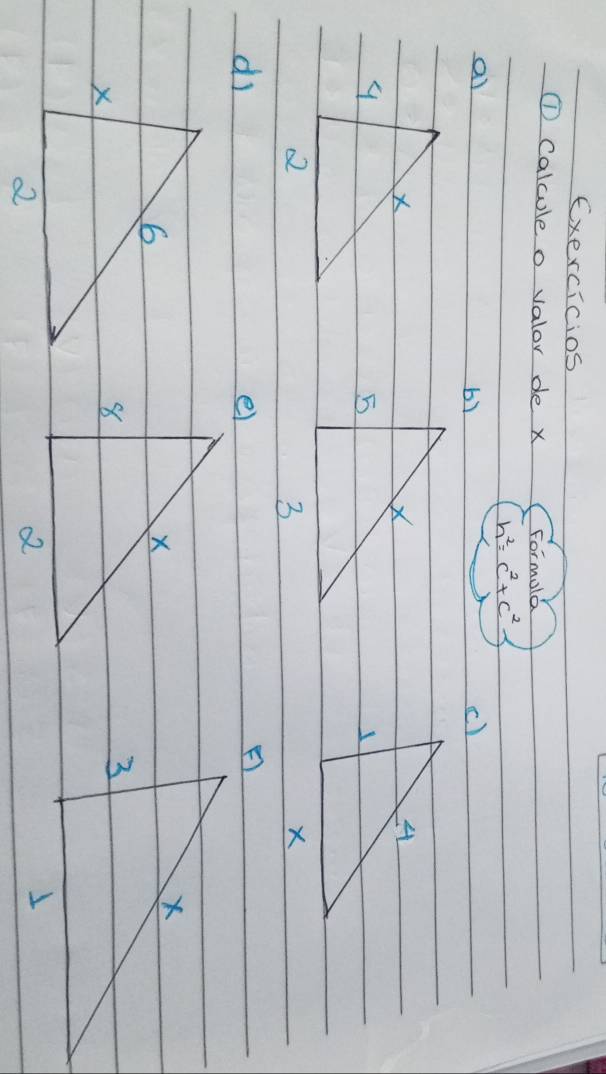 Exercícios
① Calcule o valor de x
Fórmula
h² = c² + c²
a)
4
x
2
b)
5
x
3
c)
1
4
x
d)
x
6
2
e)
8
x
2
F)
3
x
1